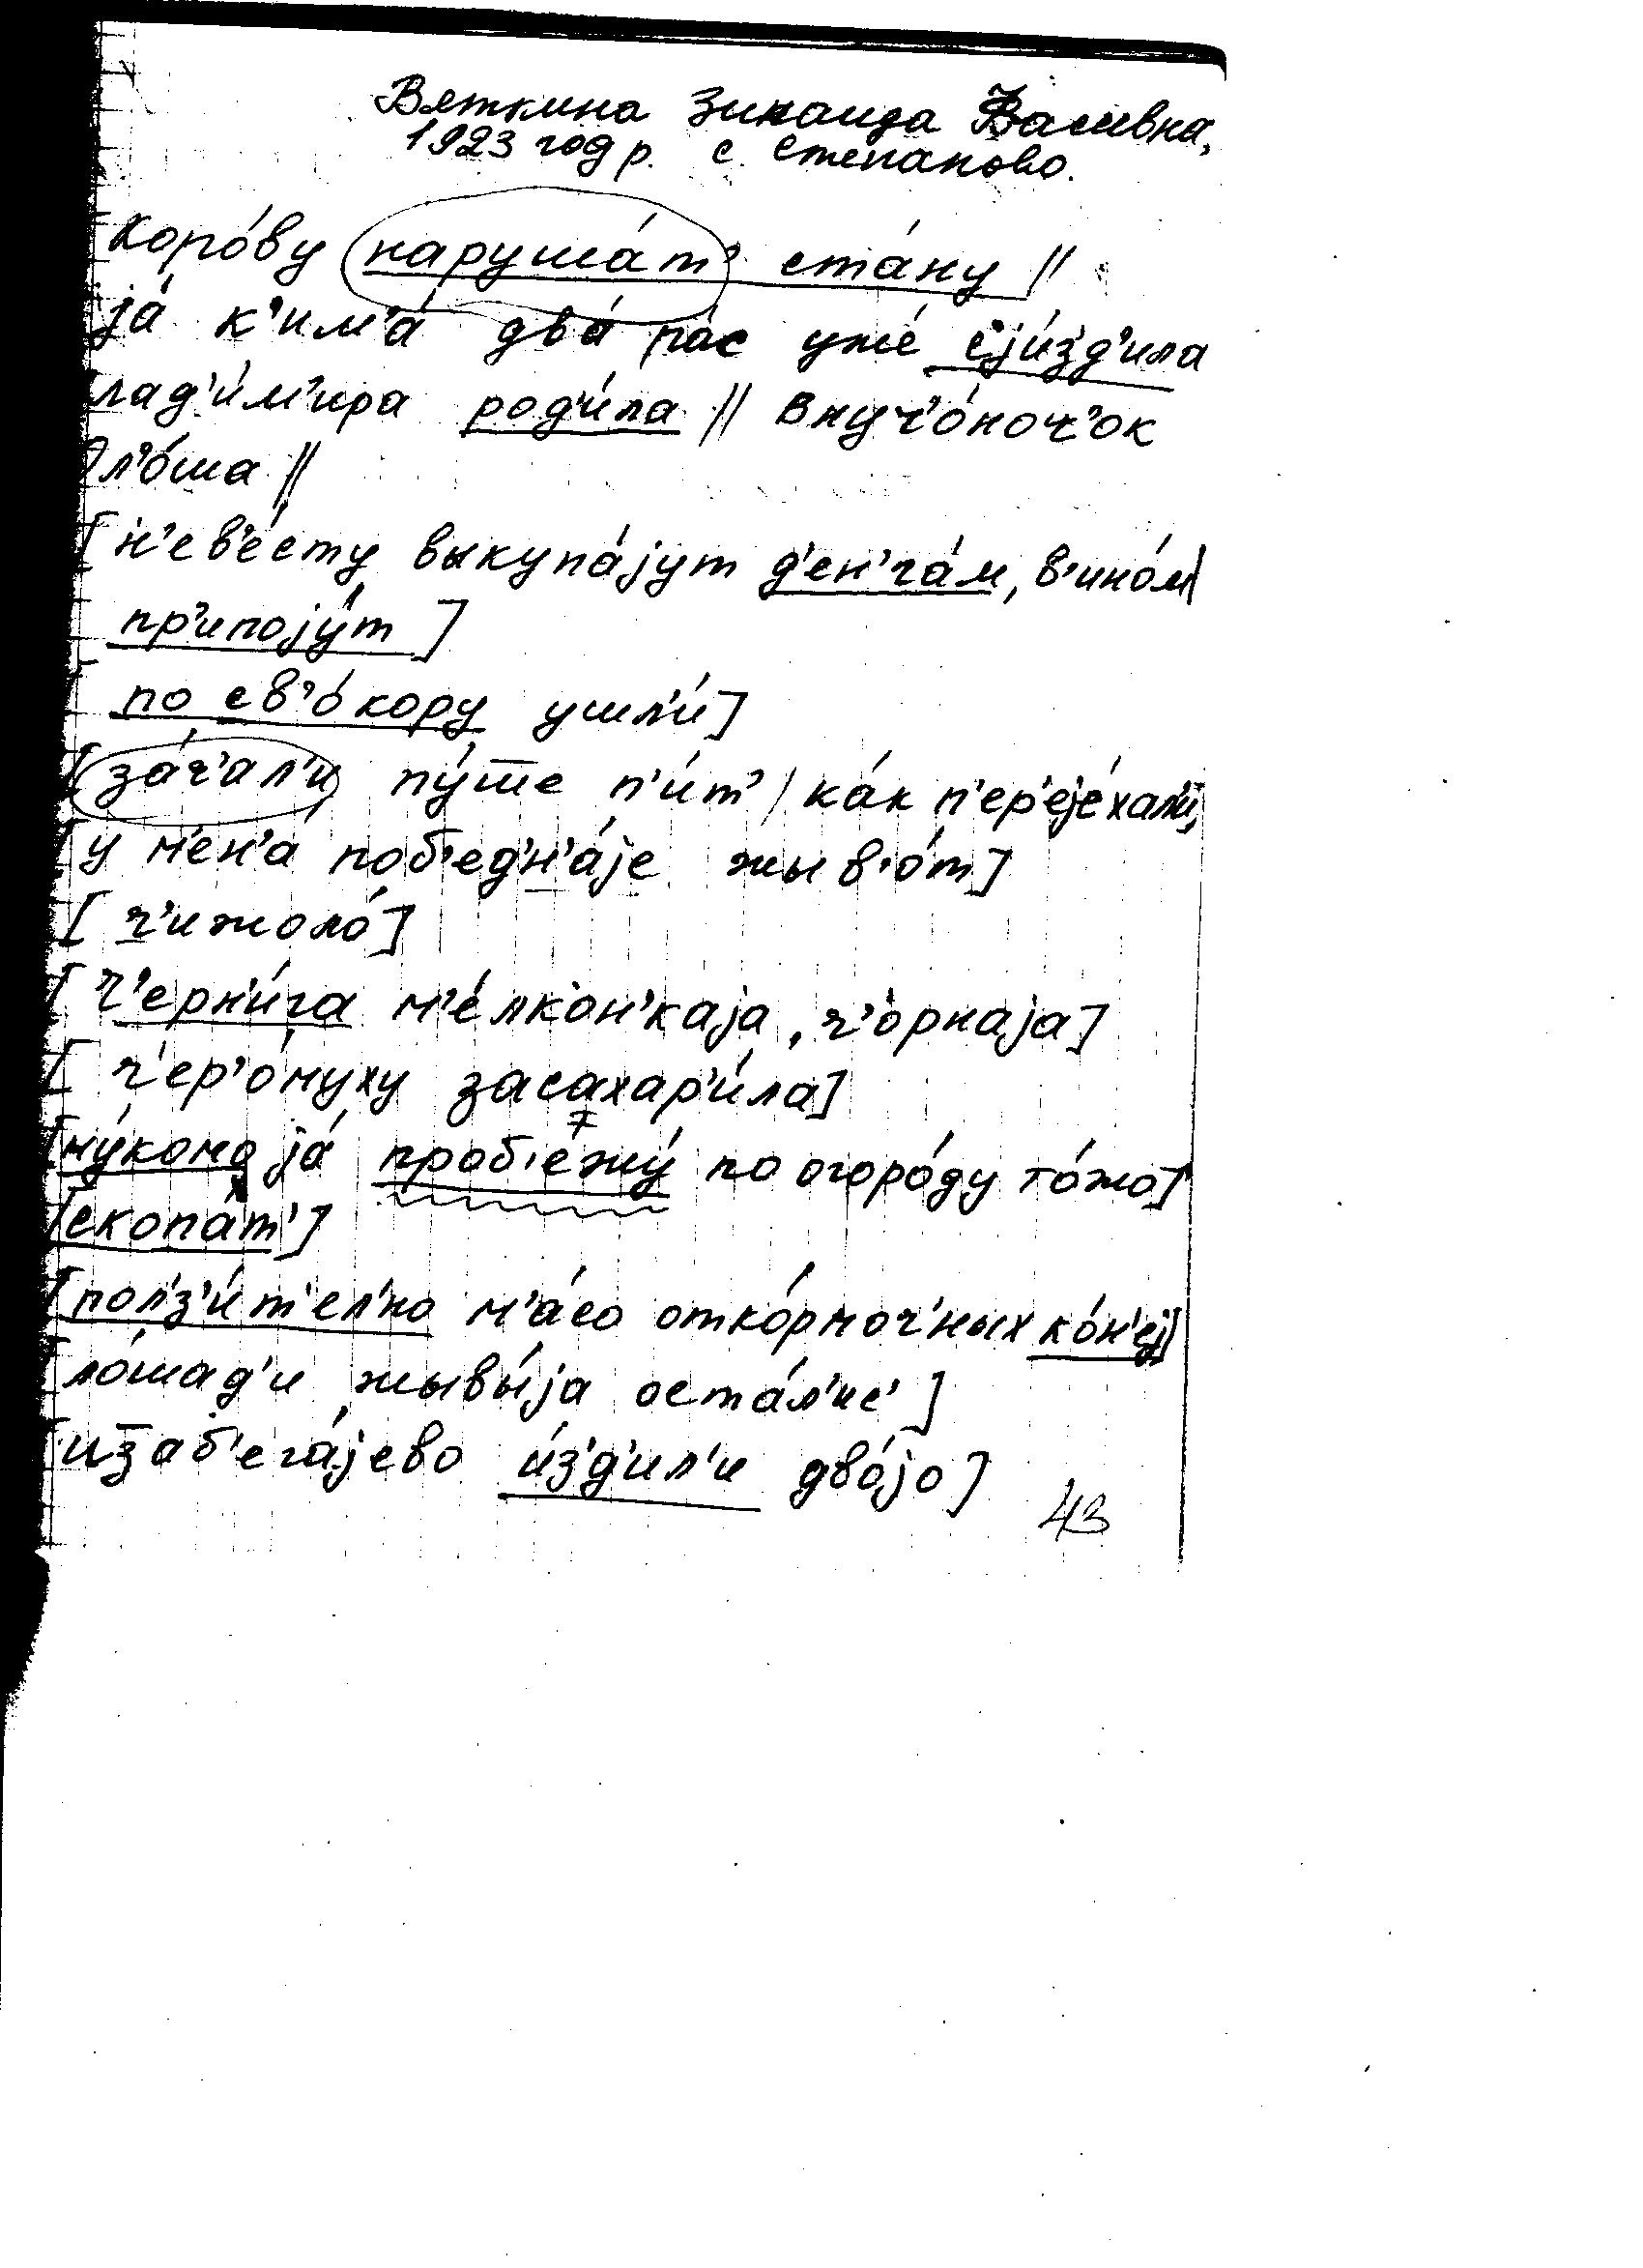 Вяткина Зинаида Васивна,
1923 год р. с. Степаново.
Коро́ву наруша́т' ста́ну ||
jа́ к'им'а́ два́ ра́с уже́ сjи́зд'ила
лад'и́м'ира род'и́ла || внуч'о́ноч'ок
л'о́ша ||
[н'ев'е́сту выкупа́jут д'ен'га́м, в'ино́м|
пр'ипоjу́т]
по св'о́кору ушл'и́]
[за́ч'ал'и пу́ш̅е п'и́т' / ка́к п'ер'еjе́хал'и,
[у м'ен'а́ поб'едн'а́jе жыв'о́т]
[ч'ижоло́]
[ч'ерн'и́га м'е́лкон'каjа, ч'о́рнаjа]
[ч'ер'о́муху засахар'и́ла]
[ну́кома jа́ проб'ежу́ по огоро́ду то́жо]
[скопа́т']
[пол'з'и́т'ел'но м'а́со отко́рмоч'ных ко́н'еj]
[ло́шад'и жывы́jа оста́л'ис']
[изаб'ега́jево и́зд'ил'и дво́jо]
43